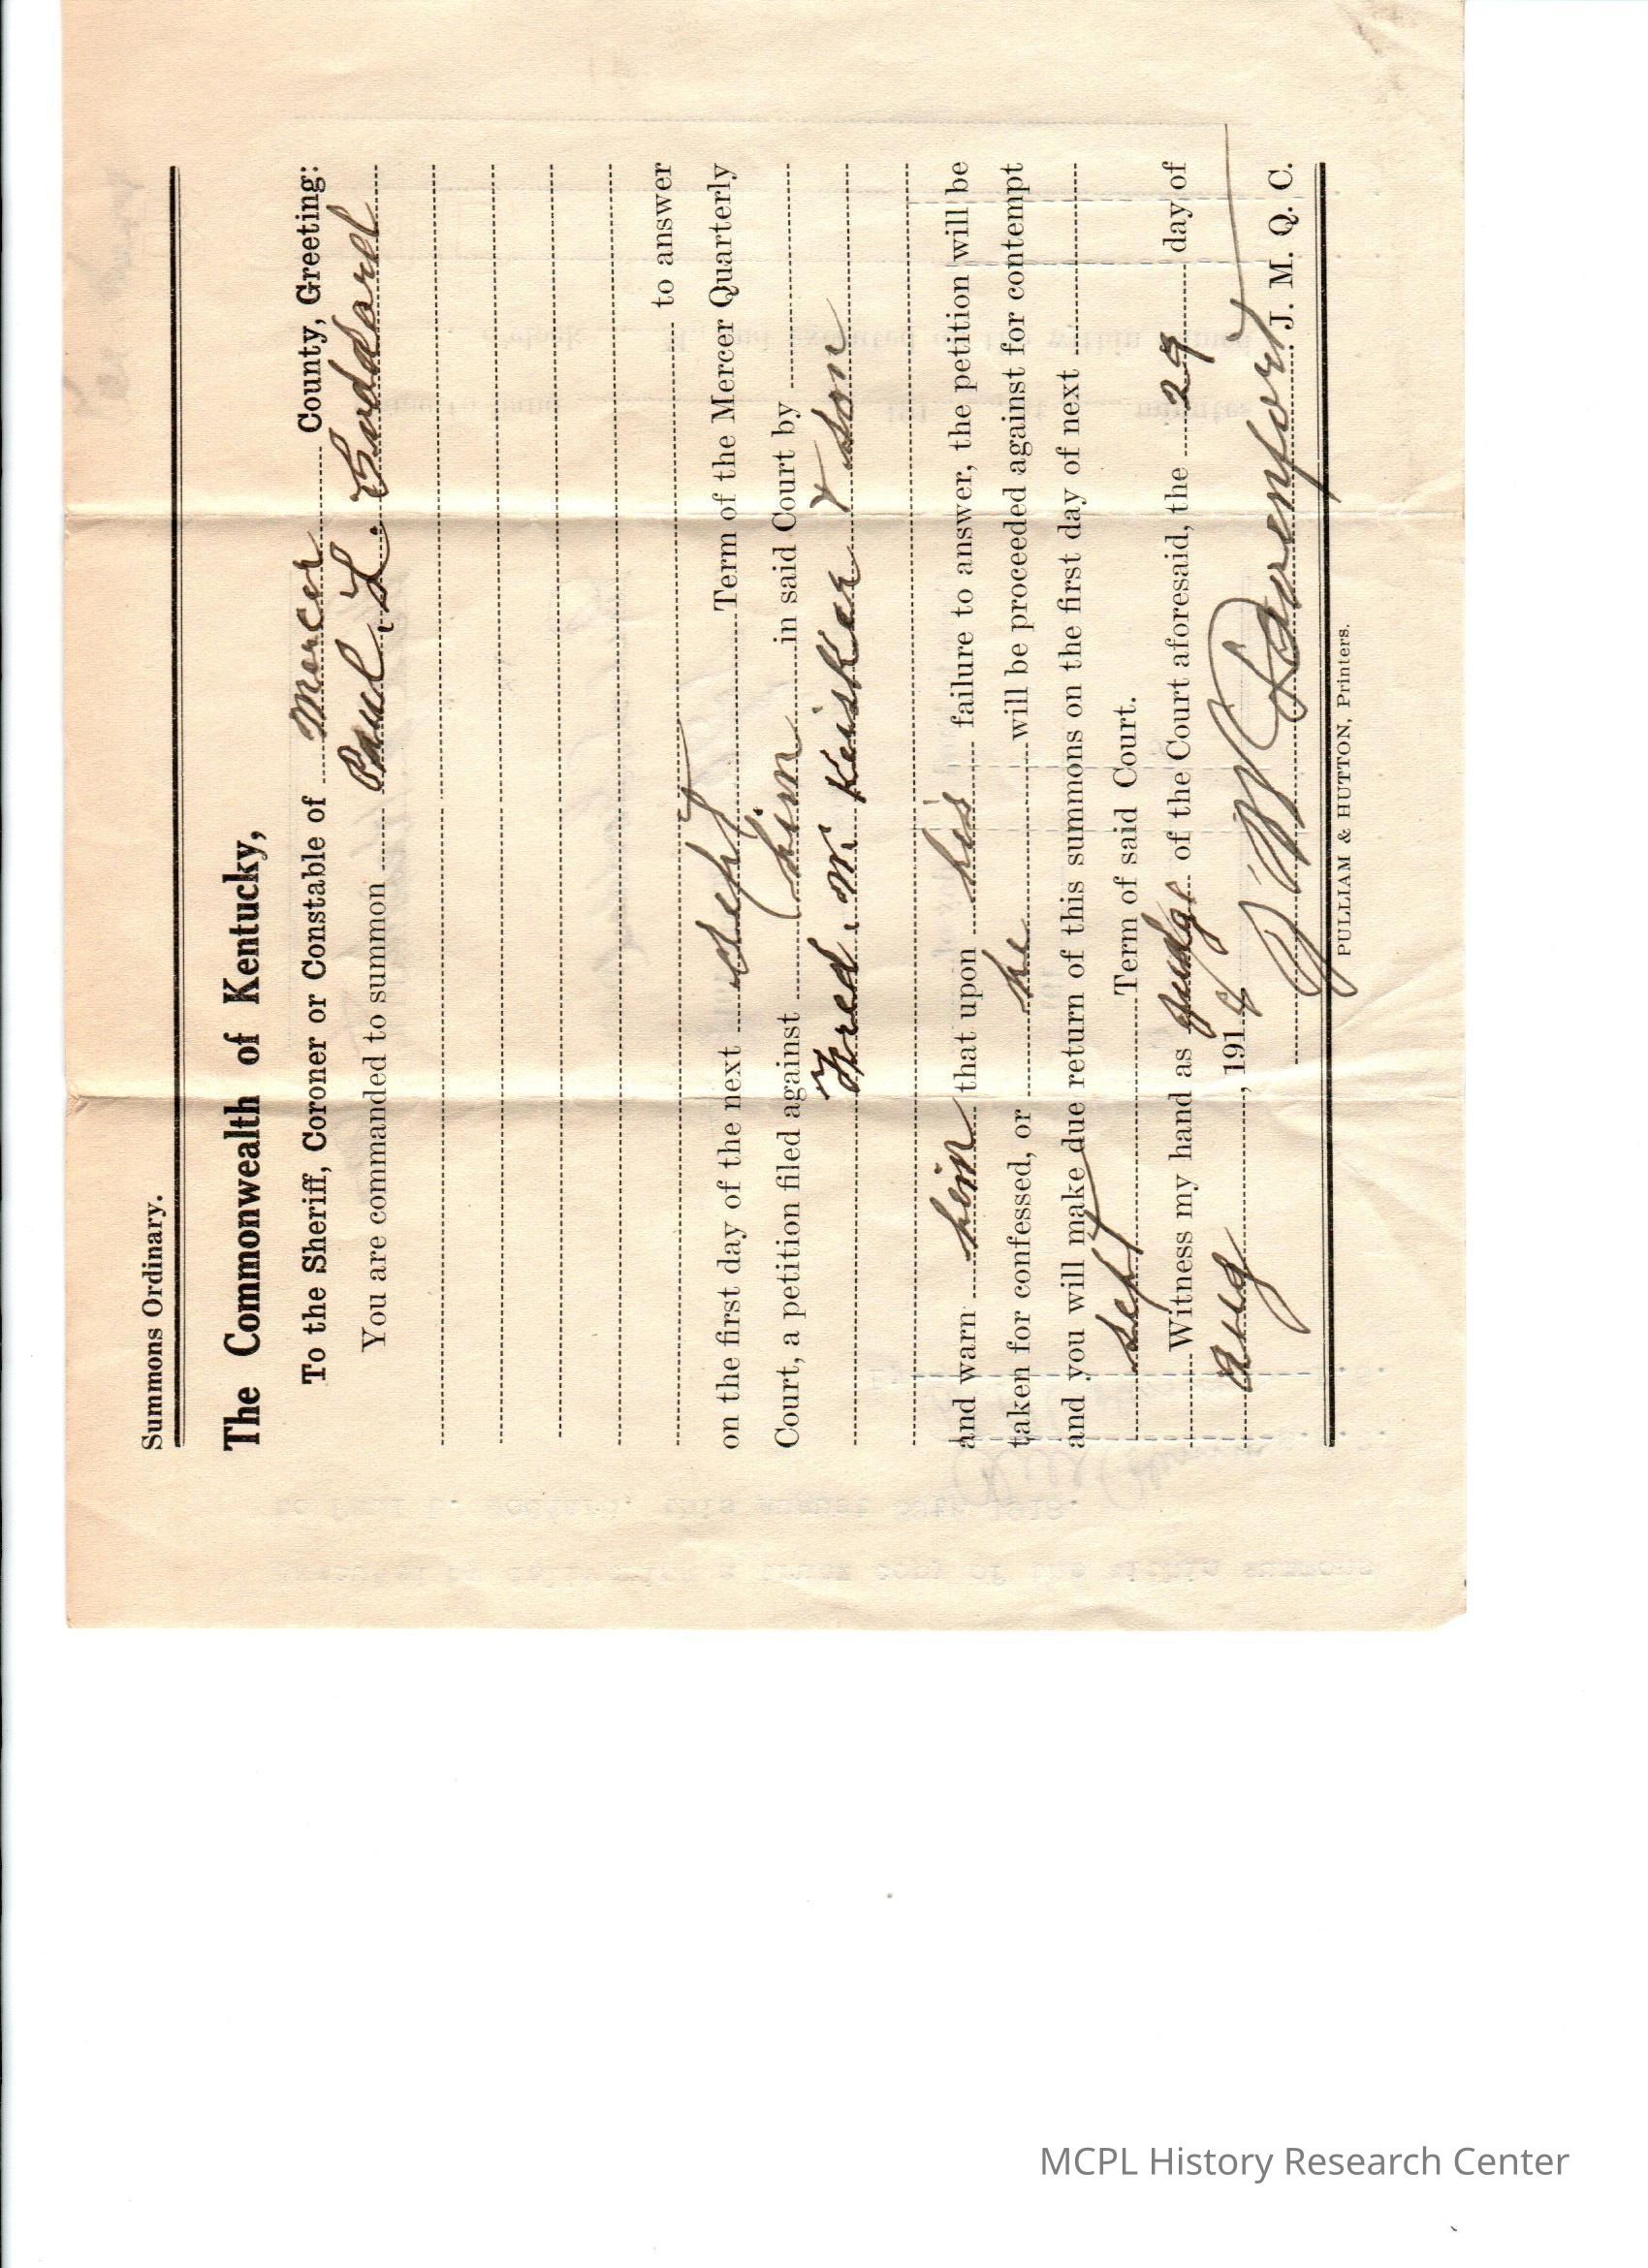 Summons Ordinary.
The Commonwealth of Kentucky,
To the Sheriff, Coroner or Constable of Mercer County, Greeting:
You are commanded to summon Paul L. Goddard
to answer
on the first day of the next Sept Term of the Mercer Quarterly
Court, a petition filed against him in said Court by
Fred. M Keisker & Son
and warn him that upon his failure to answer, the petition will be
taken for confessed, or he will be proceeded against for contempt
and you will make due return of this summons on the first day of next
Sept Term of said Court.
Witness my hand as Judge of the Court aforesaid, the 29 day of
Aug, 191
Davenport J. M. Q. C.
PULLIAM & HUTTON, Printers.
MCPL History Research Center